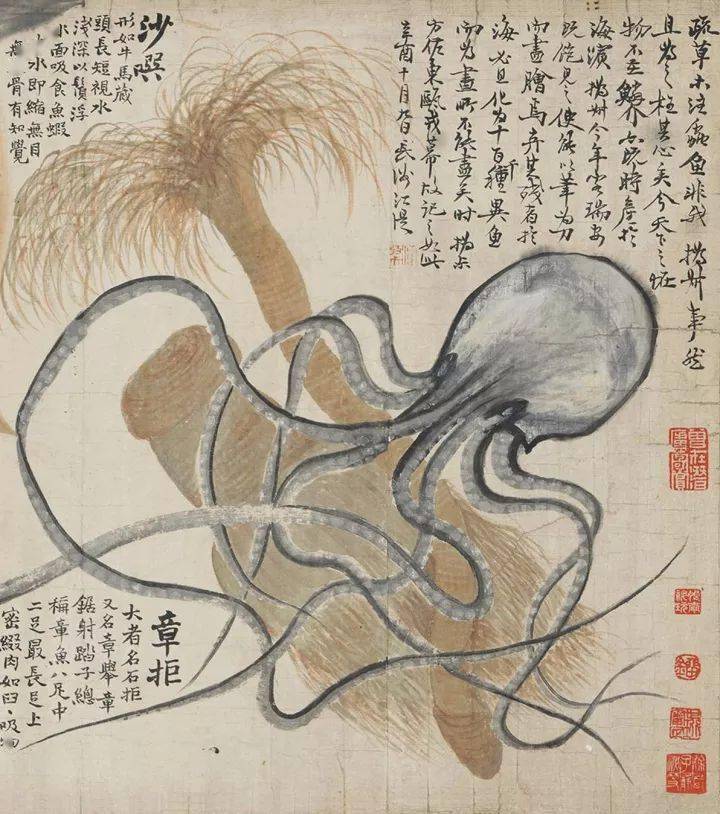 疏草木注蟲魚非我撝叔事然
且為之枉其心矣今天下之怪
物不在鱗介
海濱撝叔今年客瑞安
既飽見之使能以筆為刀
而畫膾焉弃其殘者於
海必且化為千百種異魚
而為畫所不能盡矣時撝叔
方佐東甌戎幕故記之如此
辛酉十月長洲江湜
沙噀
形如牛馬藏
頭長短視水
淺深以鬚浮
水面吸食魚蝦
水即縮無目
骨有知覺
章拒
大者名石拒
又名章舉章
鋸射踏子總
稱章魚八足中
二足最長足上
密綴肉如臼、吸